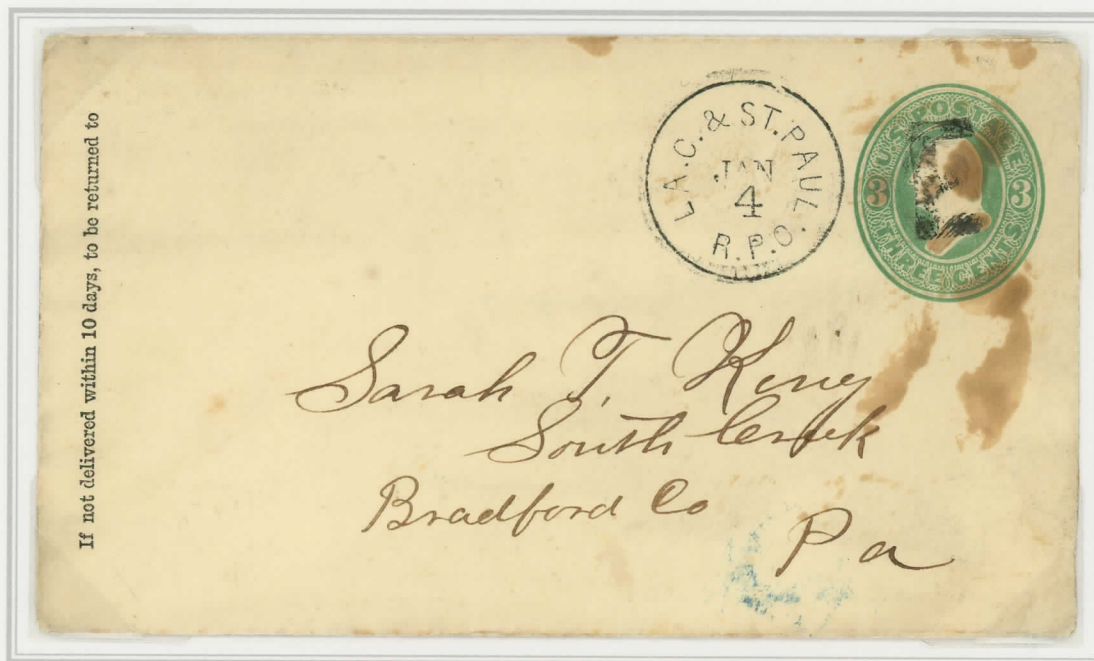 If not delivered within 10 days, to be returned to
LA.C. & ST. PAUL
JAN
4
R.P.O.
U.S. POSTAGE
3 3
THREE CENTS
Sarah T. King
South Creek
Bradford Co
Pa